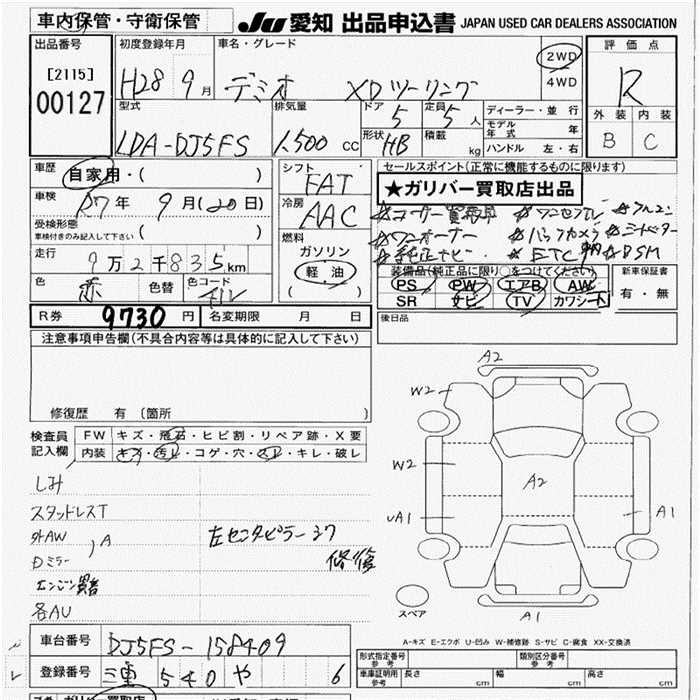 車内保管・守衛保管
JU 愛知 出品申込書 JAPAN USED CAR DEALERS ASSOCIATION
出品番号 初度登録年月 車名・グレード 評価点
[2115]
00127
H28 9月 デミオ XDツーリング 2WD 4WD R
型式 排気量 ドア 定員 ディーラー・並行 外装 内装
LDA-DJ5FS 1,500cc 5 5人
モデル年式 年
形状 HB 積載 kg ハンドル 左・右 B C
車歴 自家用・( )
シフト FAT
セールスポイント(正常に機能するものに限ります)
★ガリバー買取店出品
車検 R7年 9月(20日)
冷房 AAC
受検形態
車検付きのみ記入して下さい ( )
燃料 ガソリン 軽油 ( )
ワンオーナー バックカメラ
純正ナビ ETC BSM
走行 7万2千835km
装備品(純正品に限り○をつけてください) 新車保証書
PS PW エアB AW 有・無
SR ナビ TV カワシート
色 赤 色替 色コード 41V
R券 9730円 名変期限 月 日
後日品
注意事項申告欄(不具合内容等は具体的に記入して下さい)
修復歴 有 (箇所 )
検査員記入欄
FW キズ・飛石・ヒビ割・リペア跡・X要
内装 キズ・汚レ・コゲ・穴・スレ・キレ・破レ
しみ
スタッドレスT
外AW A
Dミラー
エンジン異音
各AU
左センタピラー 修復
A2
W2
W2
A2
UA1
A1
A1
スペア
A-キズ E-エクボ U-凹み W-補修跡 S-サビ C-腐食 XX-交換済
車台番号 DJ5FS-158409
登録番号 三重 540 や 6
形式指定番号 参考 類別区分番号 参考
車庫証明用 参考 長さ cm 幅 cm 高さ cm